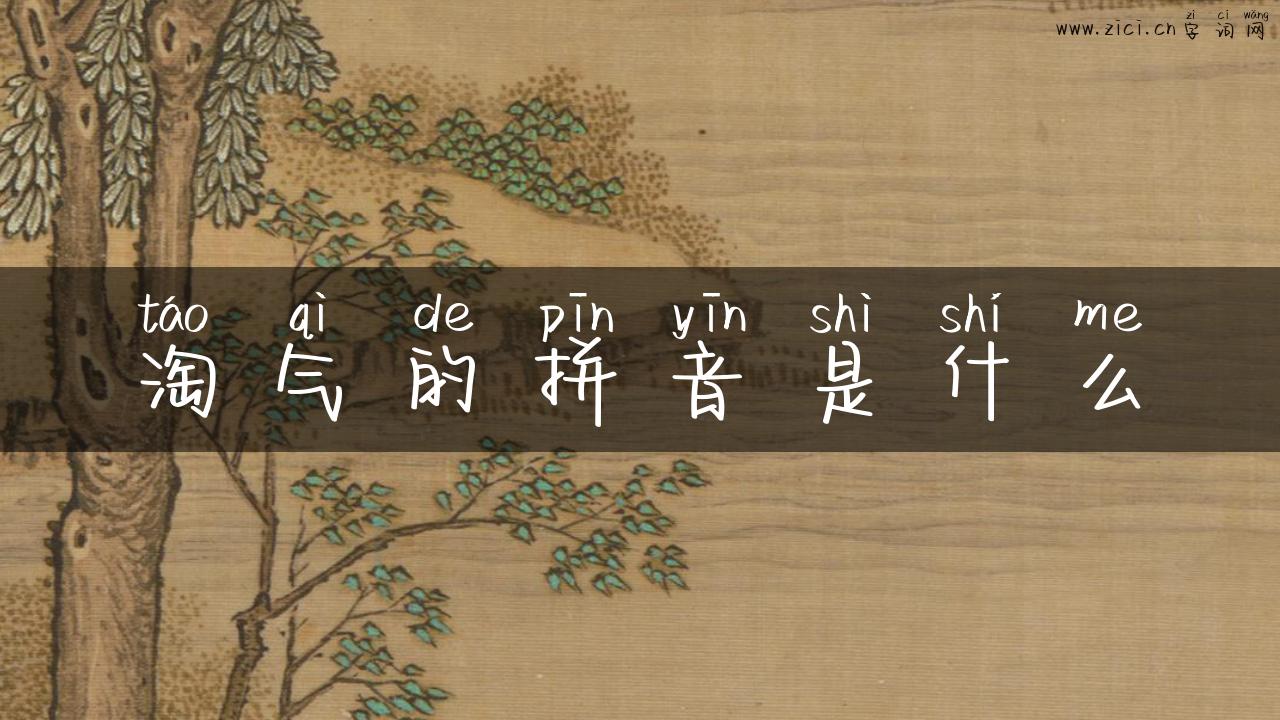 zì cí wǎng
www.zici.cn 字 词 网
táo qì de pīn yīn shì shí me
淘 气 的 拼 音 是 什 么